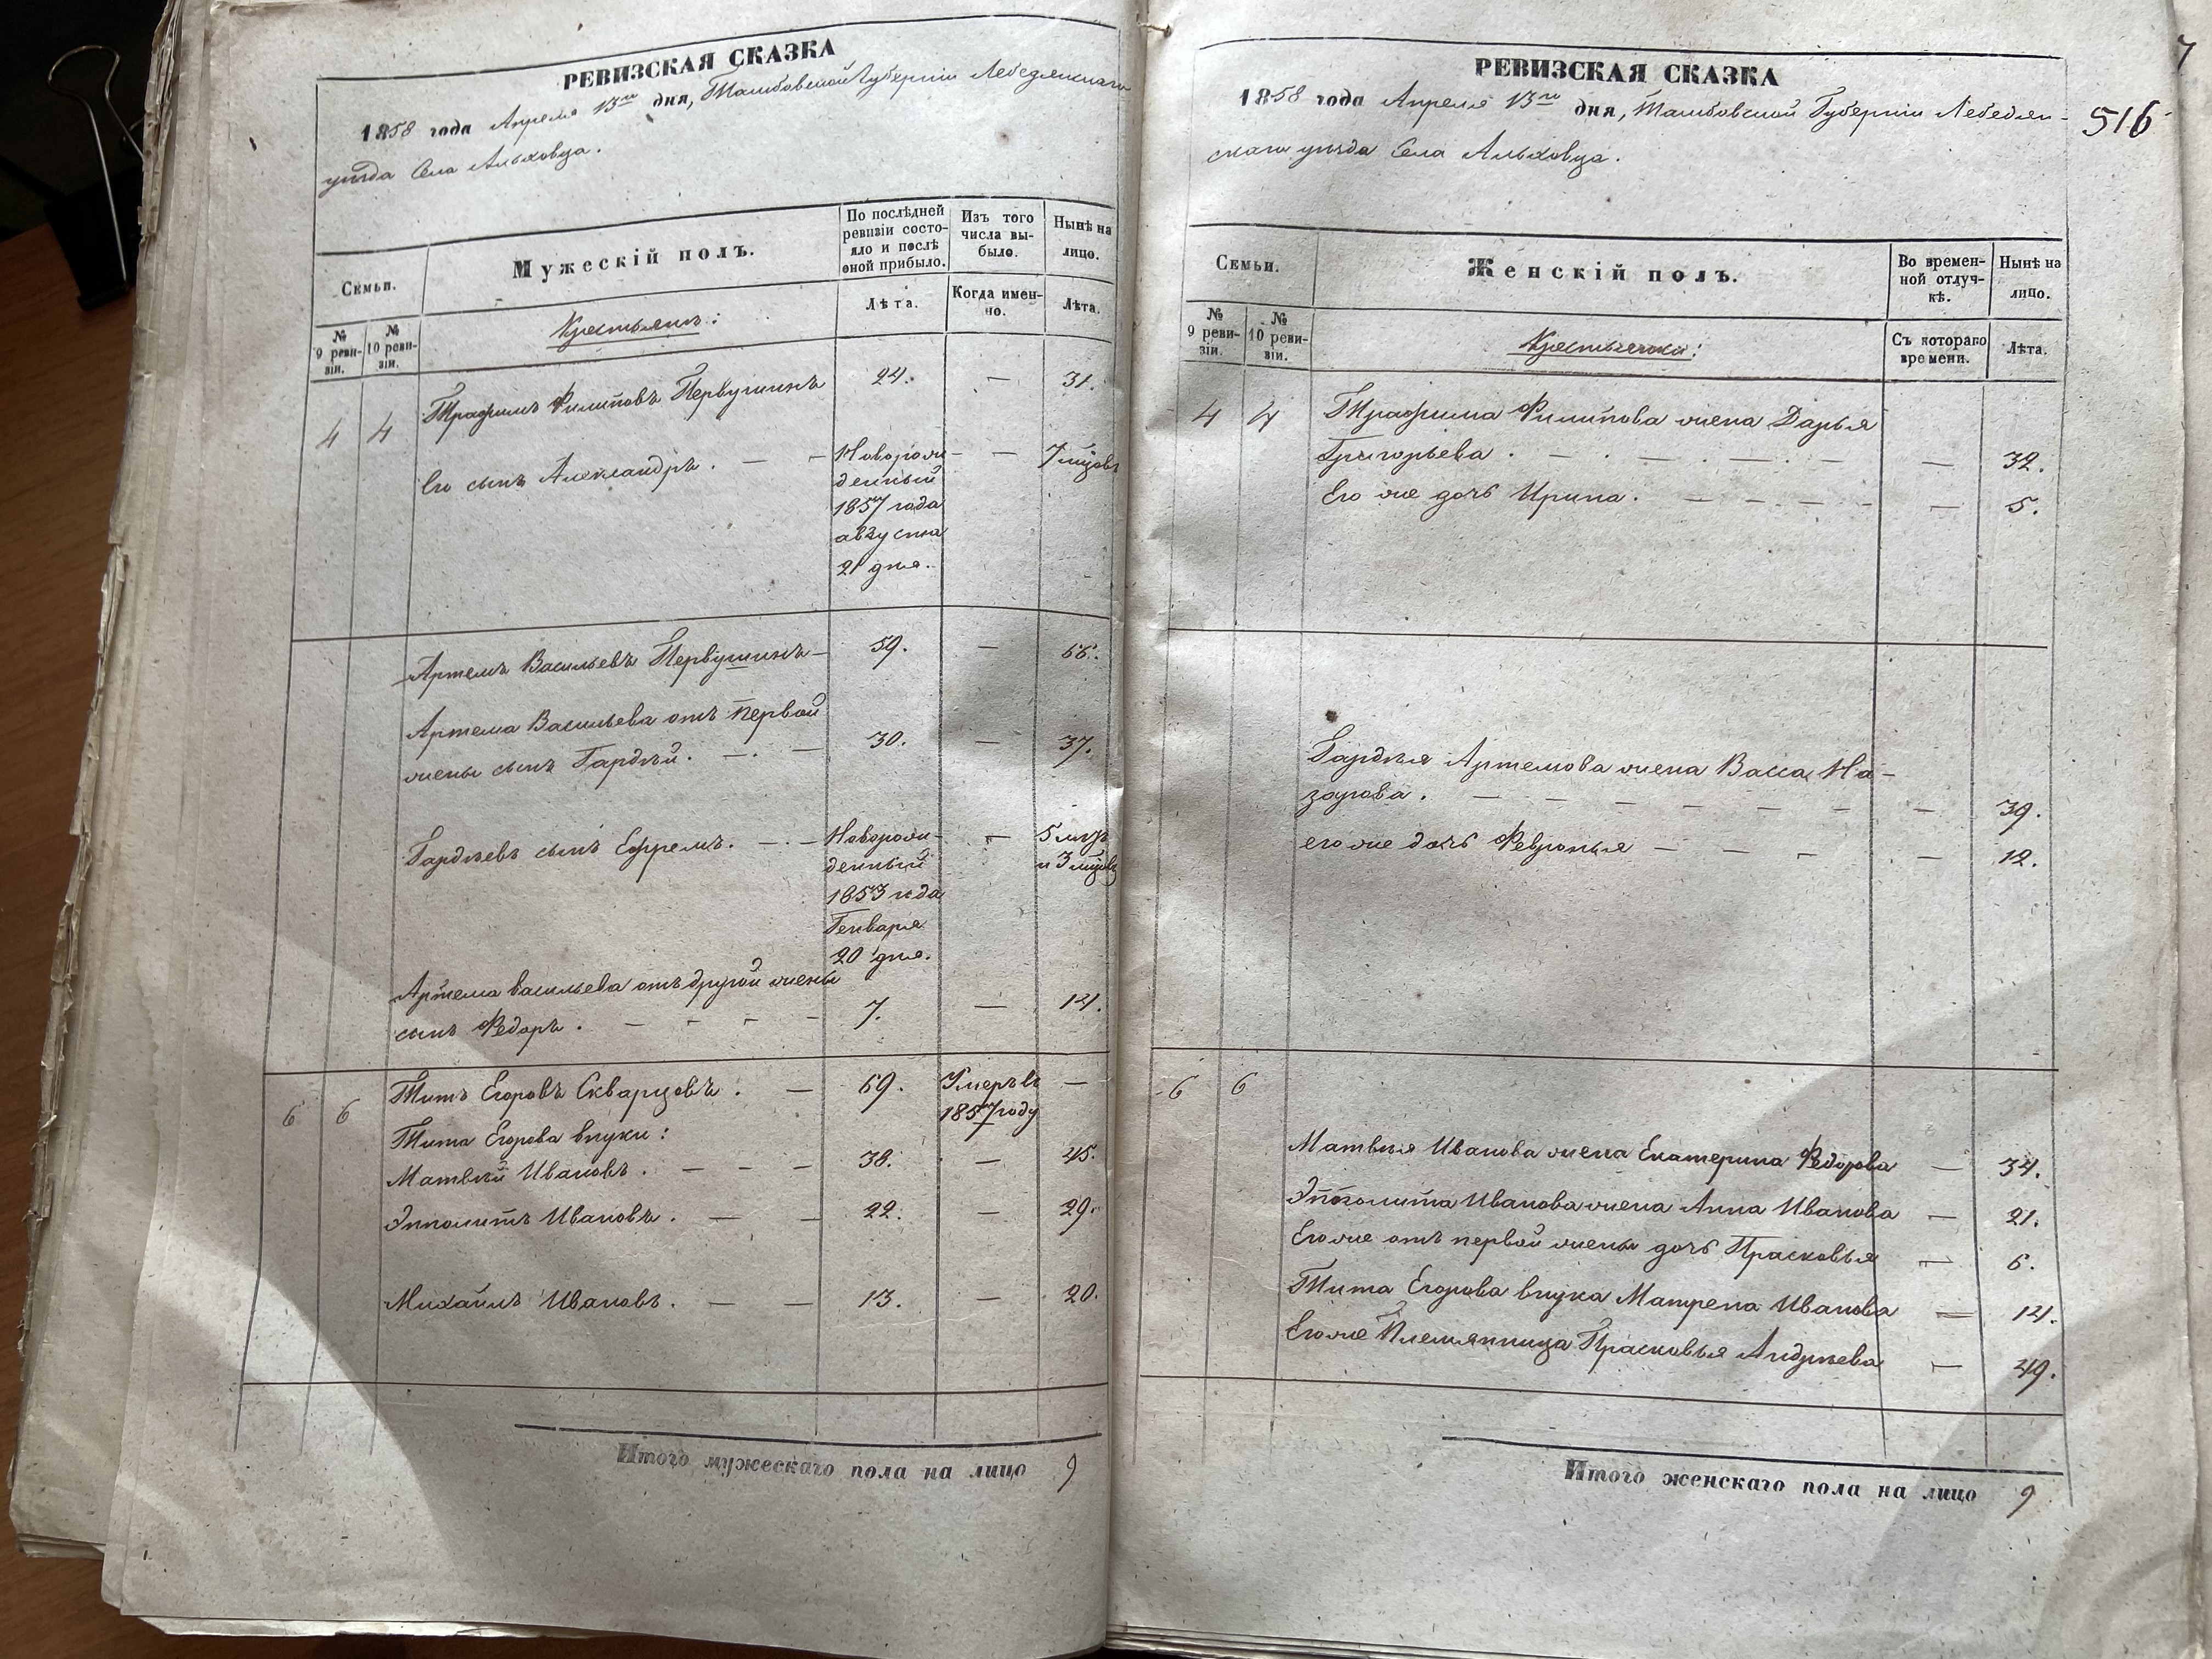 РЕВИЗСКАЯ СКАЗКА
1858 года Апреля 13го дня, Тамбовской Губернiи Лебедянскаго
уѣзда Села Альховца.
Семьи.
Мужескiй полъ.
По послѣдней
ревизiи состо-
яло и послѣ
оной прибыло.
Изъ того
числа вы-
было.
Нынѣ на
лицо.
№
9 реви-
зiи.
№
10 реви-
зiи.
Крестьянъ:
Лѣта.
Когда имен-
но.
Лѣта.
4 4 Трафимъ Филиповъ Первушинъ 24. — 31.
Его сынъ Александръ. — —Новорож- — 7 мцовъ
денный
1857 года
августа
21 дня.
Артемъ Васильевъ Первушинъ — 59. — 66.
Артема Васильева отъ первой
жены сынъ Гардѣй. — . — 30. — 37.
Гардѣевъ сынъ Ефремъ. — . — Новорож- — 5 лѣтъ
денный и 3 мцовъ
1853 года
Генваря
20 дня.
Артема Васильева отъ другой жены
сынъ Федоръ. — — — — 7. — 14.
6 6 Титъ Егоровъ Скварцовъ. — 69. Умеръ въ —
1857 году
Тита Егорова внуки:
Матвѣй Ивановъ. — — — 38. — 45.
Эпполитъ Ивановъ. — — 22. — 29.
Михаилъ Ивановъ. — — 13. — 20.
Итого мужескаго пола на лицо 9
7
516
РЕВИЗСКАЯ СКАЗКА
1858 года Апреля 13го дня, Тамбовской Губернiи Лебедян-
скаго уѣзда Села Альховца.
Семьи.
Женскiй полъ.
Во времен-
ной отлуч-
кѣ.
Нынѣ на
лицо.
№
9 реви-
зiи.
№
10 реви-
зiи.
Крестьянки:
Съ котораго
времени.
Лѣта.
4 4 Трафима Филипова жена Дарья
Григорьева. — . — . — . — — 32.
Его же дочь Ирина. — — — — — 5.
Гардѣя Артемова жена Васса На-
зарова. — — — — — — — — 39.
его же дочь Февронья — — — — — 12.
6 6
Матвѣя Иванова жена Екатерина Федорова — 34.
Эпполита Иванова жена Анна Иванова — 21.
Его же отъ первой жены дочь Прасковья — 6.
Тита Егорова внука Матрена Иванова — 14.
Его же Племянница Прасковья Андреева — 49.
Итого женскаго пола на лицо 9